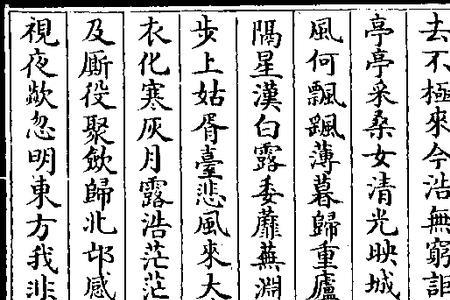 去不極來今浩無窮詎
亭亭采桑女清光映城
風何飄颻薄暮歸重廬
隔星漢白露委蘼蕪淵
步上姑胥臺悲風來大
衣化寒灰月露浩茫茫
及厮役聚斂歸北邙感
視夜歘忽明東方我悲